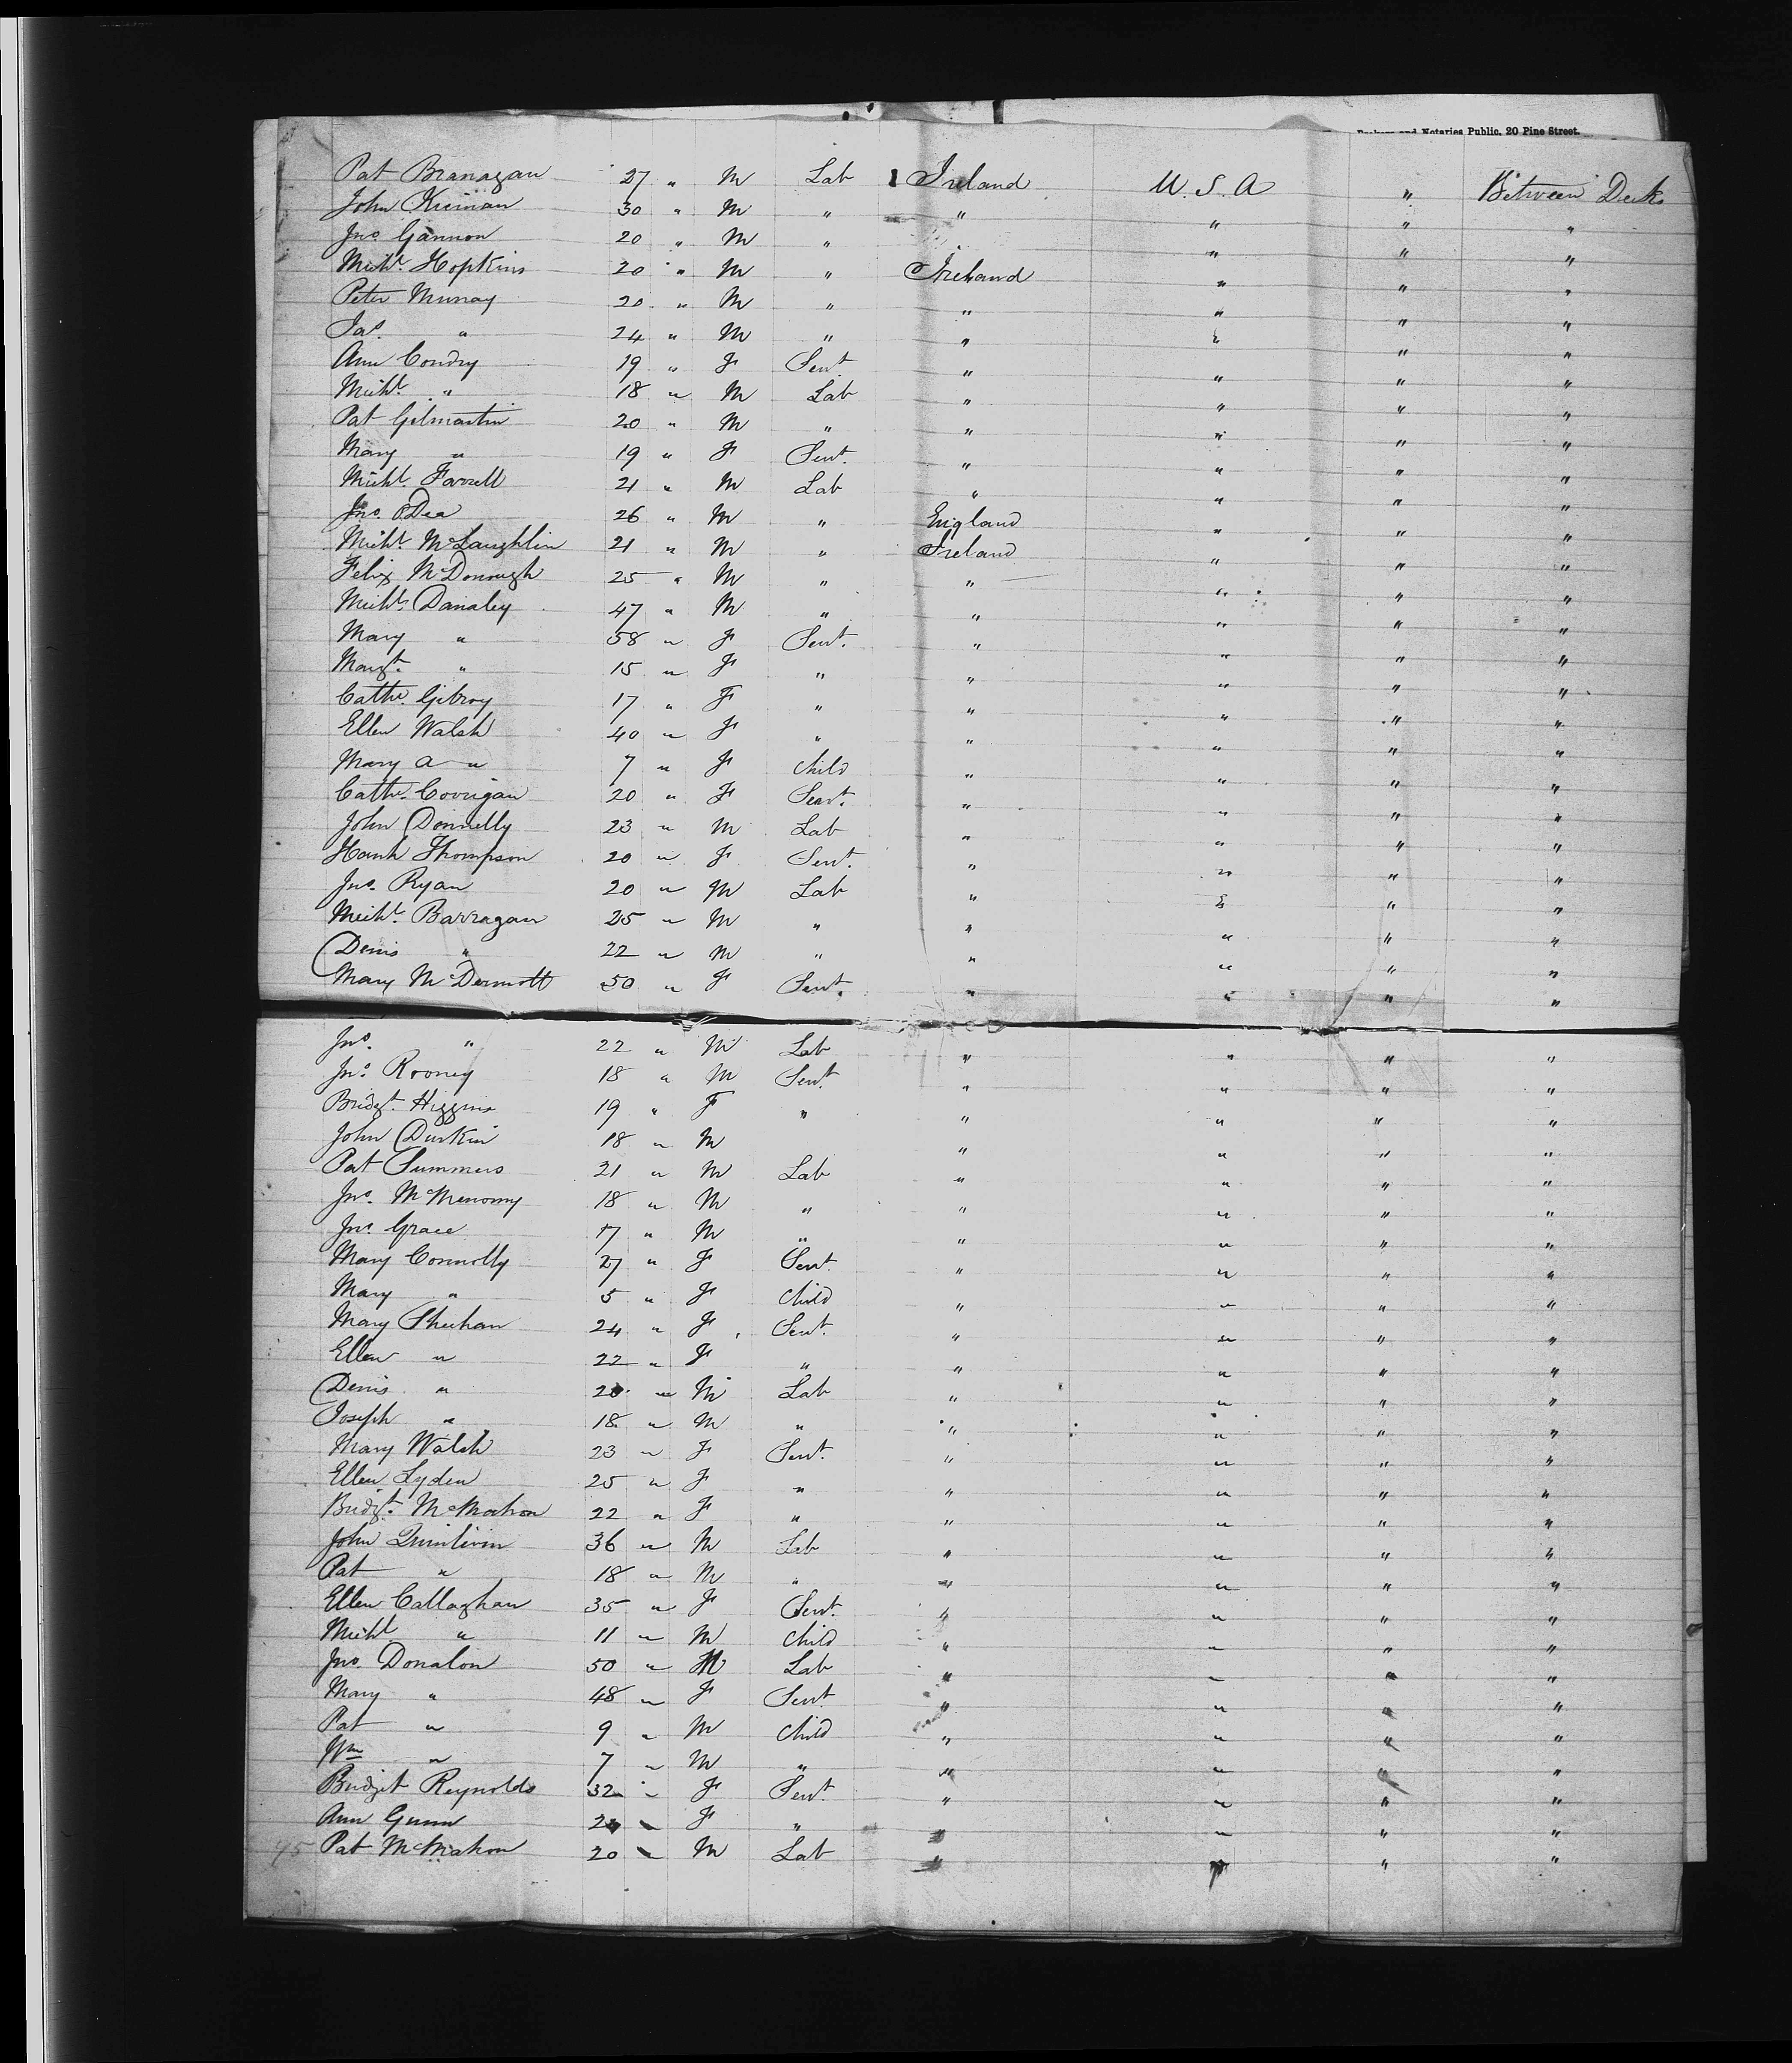 Notaries Public, 20 Pine Street.
Pat Branagan 27 " M Lab Ireland U. S. A " Between Decks
John Kiernan 30 " M " " " " "
Jno Gannon 20 " M " " " "
Michl. Hopkins 20 " M " Ireland " " "
Peter Murray 20 " M " " " " "
Jas " 24 " M " " " " "
Ann Condry 19 " F Servt " " " "
Michl. " 18 " M Lab " " " "
Pat Gilmartin 20 " M " " " " "
Mary " 19 " F Servt. " " " "
Michl. Farrell 21 " M Lab " " " "
Jno. ODea 26 " M " England " " "
Michl. McLaughlin 21 " M " Ireland " " "
Felix McDonough 25 " M " " " " "
Michl. Danaley 47 " M " " " " "
Mary " 58 " F Servt. " " " "
Margt. " 15 " F " " " " "
Cathe. Gilroy 17 " F " " " " "
Ellen Walsh 40 " F " " " " "
Mary A " 7 " F Child " " " "
Cathe. Corrigan 20 " F Servt. " " " "
John Donnelly 23 " M Lab " " " "
Hanh Thompson 20 " F Servt. " " " "
Jno. Ryan 20 " M Lab " " " "
Michl. Barragan 25 " M " " " " "
Denis " 22 " M " " " " "
Mary McDermott 50 " F Servt. " " " "
Jno. " 22 " M Lab " " " "
Jno. Rooney 18 " M Servt " " " "
Bridgt. Higgins 19 " F " " " " "
John Durkin 18 " M " " " "
Pat Summers 21 " M Lab " " " "
Jno. McMenomy 18 " M " " " " "
Jno. Grace 17 " M " " " " "
Mary Connolly 27 " F Servt. " " " "
Mary " 5 " F Child " " " "
Mary Sheehan 24 " F Servt. " " " "
Ellen " 22 " F " " " " "
Denis " 20 " M Lab " " " "
Joseph " 18 " M " " " " "
Mary Walsh 23 " F Servt. " " " "
Ellen Lyden 25 " F " " " " "
Bridgt. McMahon 22 " F " " " " "
John Quinlivin 36 " M Lab " " " "
Pat " 18 " M " " " " "
Ellen Callaghan 35 " F Servt. " " " "
Michl " 11 " M Child " " " "
Jno. Donalon 50 " M Lab " " " "
Mary " 48 " F Servt. " " " "
Pat " 9 " M Child " " " "
Wm " 7 " M " " " " "
Bridget Reynolds 32 " F Servt. " " " "
Ann Gunn " F " " " " "
45 Pat McMahon 20 " M Lab " " " "